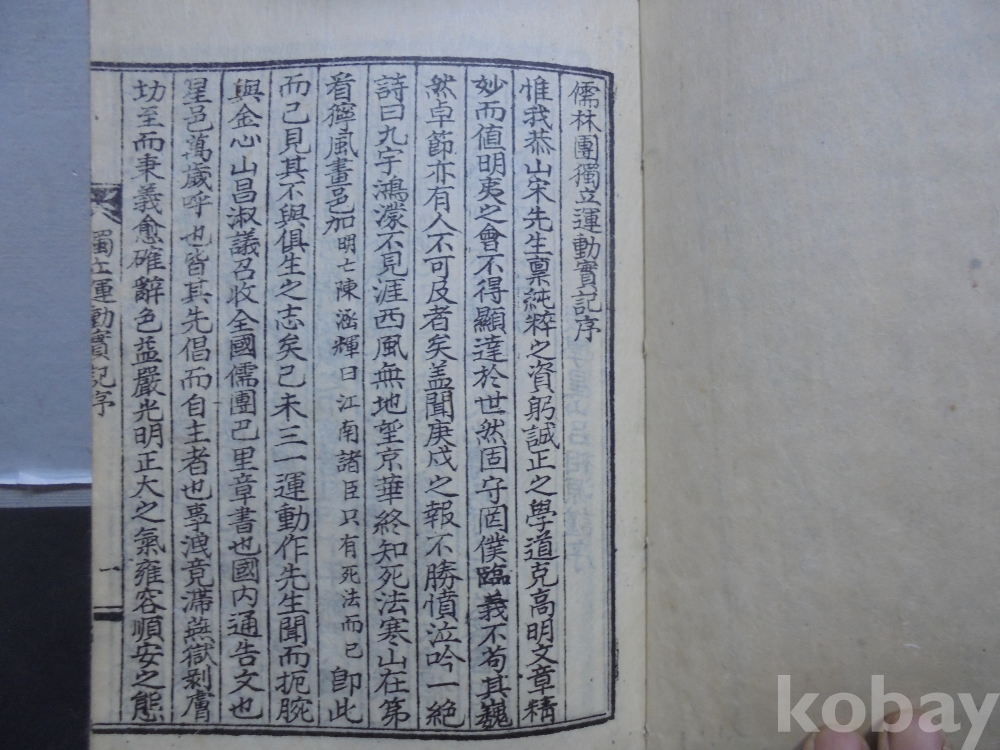 儒林團獨立運動實記序
惟我恭山宋先生稟純粹之資躬誠正之學道克高明文章精
妙而值明夷之會不得顯達於世然固守罔僕臨義不苟其巍
然卓節亦有人不可及者矣盖聞庚戌之報不勝憤泣吟一絶
詩曰九宇鴻濛不見涯西風無地望京華終知死法寒山在第
看獰風畫邑加明亡陳涵輝曰江南諸臣只有死法而已卽此
而己見其不與俱生之志矣己未三一運動作先生聞而扼腕
與金心山昌淑議召收全國儒團巴里章書也國內通告文也
星邑萬歲呼也皆其先倡而自主者也事洩竟滯燕獄剥膚
切至而秉義愈確辭色益嚴光明正大之氣雍容順安之態
獨立運動實記序
一
kobay